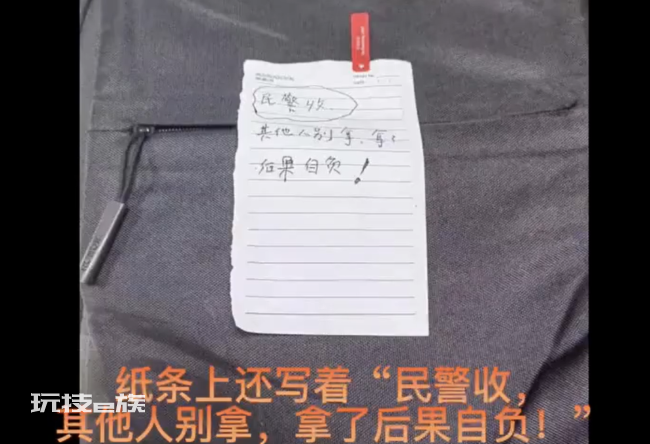 民警收
其他人别拿，拿了
后果自负！
纸条上还写着“民警收，
其他人别拿，拿了后果自负！”
玩技e族